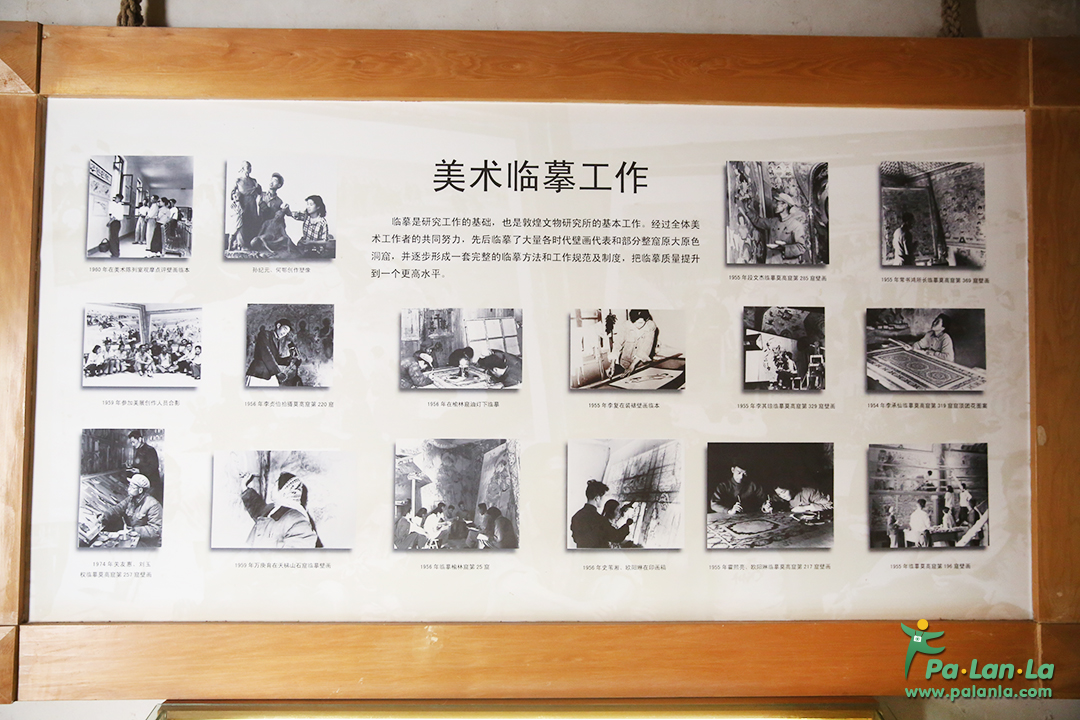 美术临摹工作
临摹是研究工作的基础，也是敦煌文物研究所的基本工作。经过全体美
术工作者的共同努力，先后临摹了大量各时代壁画代表和部分整窟原大原色
洞窟，并逐步形成一套完整的临摹方法和工作规范及制度，把临摹质量提升
到一个更高水平。
1960年在美术陈列室观摩点评壁画临本
孙纪元、何鄂创作塑像
1955年段文杰临摹莫高窟第285窟壁画
1955年常书鸿所长临摹莫高窟第369窟壁画
1959年参加某展创作人员合影
1956年李贞伯拍摄莫高窟第220窟
1956年在榆林窟油灯下临摹
1955年李复在装裱壁画临本
1955年李其琼临摹莫高窟第329窟壁画
1954年李承仙临摹莫高窟第319窟窟顶团花图案
1974年关友惠、刘玉
权临摹莫高窟第257窟壁画
1955年万庚育在天梯山石窟临摹壁画
1956年临摹榆林窟第25窟
1956年史苇湘、欧阳琳在印画稿
1955年霍熙亮、欧阳琳临摹莫高窟第217窟壁画
1955年临摹莫高窟第196窟壁画
Pa·Lan·La
www.palanla.com